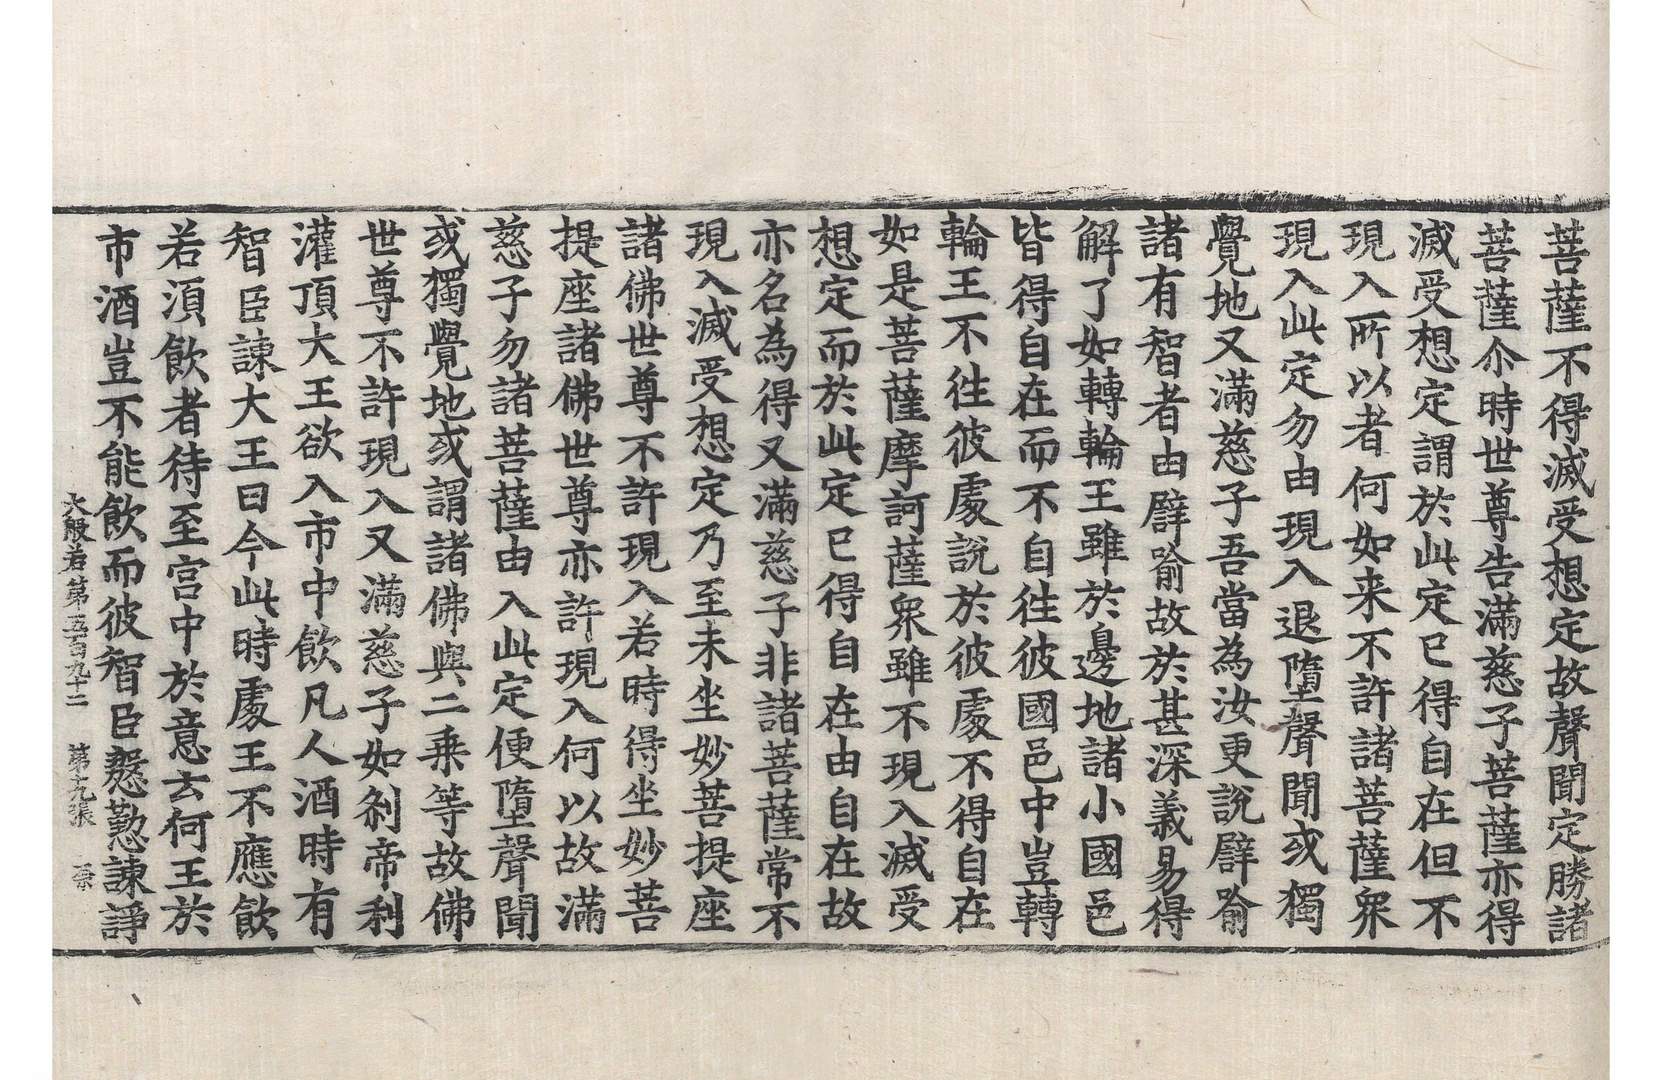 菩薩不得滅受想定故聲聞定勝諸
菩薩尒時世尊告滿慈子菩薩亦得
滅受想定謂於此定已得自在但不
現入所以者何如来不許諸菩薩衆
現入此定勿由現入退墮聲聞或獨
覺地又滿慈子吾當為汝更說譬喻
諸有智者由譬喻故於甚深義易得
解了如轉輪王雖於邊地諸小國邑
皆得自在而不自往彼國邑中豈轉
輪王不往彼處說於彼處不得自在
如是菩薩摩訶薩衆雖不現入滅受
想定而於此定已得自在由自在故
亦名為得又滿慈子非諸菩薩常不
現入滅受想定乃至未坐妙菩提座
諸佛世尊不許現入若時得坐妙菩
提座諸佛世尊亦許現入何以故滿
慈子勿諸菩薩由入此定便墮聲聞
或獨覺地或謂諸佛與二乗等故佛
世尊不許現入又滿慈子如刹帝利
灌頂大王欲入市中飲凡人酒時有
智臣諫大王曰今此時處王不應飲
若湏飲者待至宮中於意云何王於
市酒豈不能飲而彼智臣慇懃諫諍
大般若第五百九十二 第九張 柰